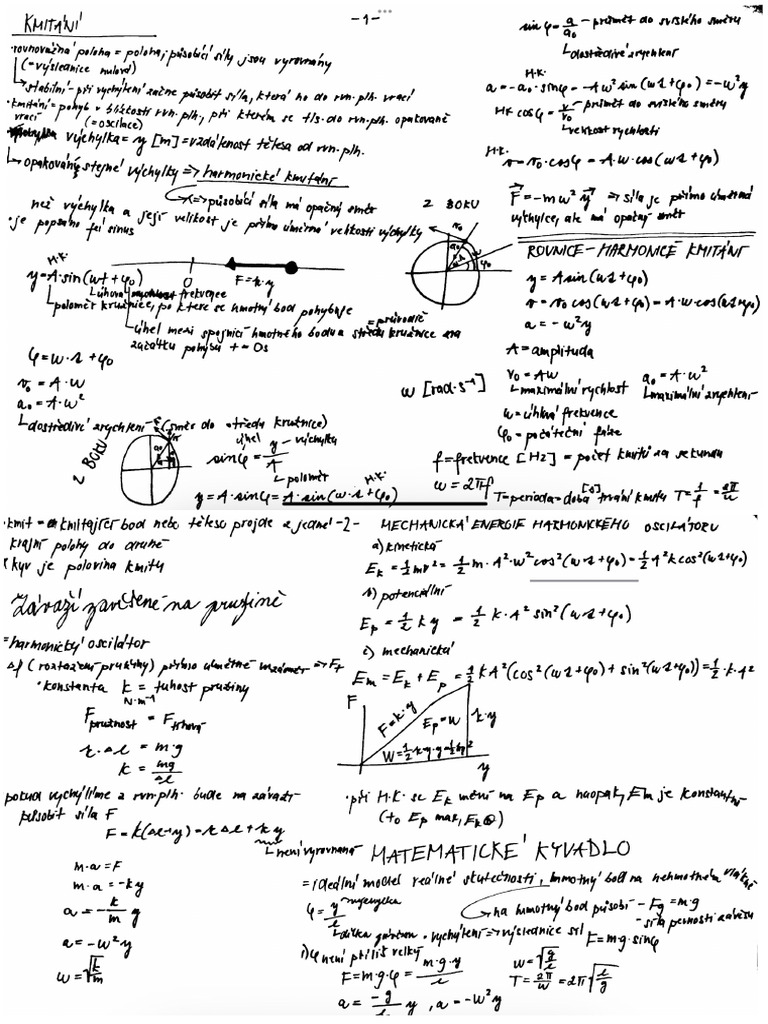 KMITÁNÍ
-1-
·rovnovážná poloha = poloha, působící síly jsou vyrovnány
(=výslednice nulová)
stabilní - při vychýlení začne působit síla, která ho do rvn.plh. vrací
·kmitání = pohyb v blízkosti rvn.plh., při kterém se tls. do rvn.plh. opakovaně
vrací (=oscilace)
výchylka = y [m] = vzdálenost tělesa od rvn.plh.
opakovány stejné výchylky => harmonické kmitání
<=> působící síla má opačný směr
než výchylka a její velikost je přímo úměrná velikosti výchylky
·je popsáno fcí sinus
H.K.
y = A·sin(ωt + φ0)
0
F = k·y
úhlová frekvence
poloměr kružnice, po které se hmotný bod pohybuje
= průvodič
úhel mezi spojnicí hmotného bodu a středu kružnice na
začátku pohybu t = 0s
φ = ω·t + φ0
v0 = A·ω
a0 = A·ω²
dostředivé zrychlení (směr do středu kružnice)
Z BOKU
úhel
sin φ = y/A
výchylka
poloměr
H.K.
y = A·sin φ = A·sin(ω·t + φ0)
sin φ = a/a0 - průmět do svislého směru
dostředivé zrychlení
H.K.
a = -a0·sin φ = -Aω² sin(ωt + φ0) = -ω²y
HK cos φ = v/v0 - průmět do svislého směru
velikost rychlosti
H.K.
v = v0·cos φ = A·ω·cos(ωt + φ0)
F = -mω² y => síla je přímo úměrná
výchylce, ale má opačný směr
Z BOKU
v0
a0
φ0
ROVNICE - HARMONICKÉ KMITÁNÍ
y = A sin(ωt + φ0)
v = v0 cos(ωt + φ0) = A·ω cos(ωt + φ0)
a = -ω²y
A = amplituda
v0 = Aω
a0 = A·ω²
maximální rychlost
maximální zrychlení
ω [rad·s⁻¹]
ω = úhlová frekvence
φ0 = počáteční fáze
f = frekvence [Hz] = počet kmitů za sekundu
ω = 2πf
T = perioda = doba [s] trvání kmitu T = 1/f = 2π/ω
·kmit = kmitající bod nebo těleso projde z jedné
-2-
krajní polohy do druhé
kyv je polovina kmitu
Závaží zavěšené na pružině
= harmonický oscilátor
Δl (roztažení pružiny) přímo úměrné
·konstanta k = tuhost pružiny
N·m⁻¹
Fpružnost = Ftíhová
k·Δl = m·g
k = mg/Δl
pokud vychýlíme z rvn.plh. bude na závaží
působit síla F
F = k(Δl+y) = kΔl + ky
není vyrovnaná
m·a = F
m·a = -ky
a = -k/m y
a = -ω²y
ω = √k/m
MECHANICKÁ ENERGIE HARMONICKÉHO OSCILÁTORU
a) kinetická
Ek = 1/2 mv² = 1/2 m·A²·ω² cos²(ωt + φ0) = 1/2 A²k cos²(ωt + φ0)
b) potenciální
Ep = 1/2 ky = 1/2 k·A² sin²(ωt + φ0)
c) mechanická
Em = Ek + Ep = 1/2 kA²(cos²(ωt + φ0) + sin²(ωt + φ0)) = 1/2·k·A²
F
F = k·y
Ep = W
k·y
y
·při H.K. se Ek mění na Ep a naopak, Em je konstantní
(to Ep max, Ek 0)
MATEMATICKÉ KYVADLO
= ideální model reálné skutečnosti, hmotný bod na nehmotném vlákně
φ = y/l
výchylka
délka závěsu
na hmotný bod působí - Fg = m·g
- síla pevnosti závěsu
·vychýlení => výslednice sil F = m·g·sin φ
φ není příliš velký
F = m·g·φ = m·g·y/l
ω = √g/l
T = 2π/ω = 2π√l/g
a = -g/l y, a = -ω²y